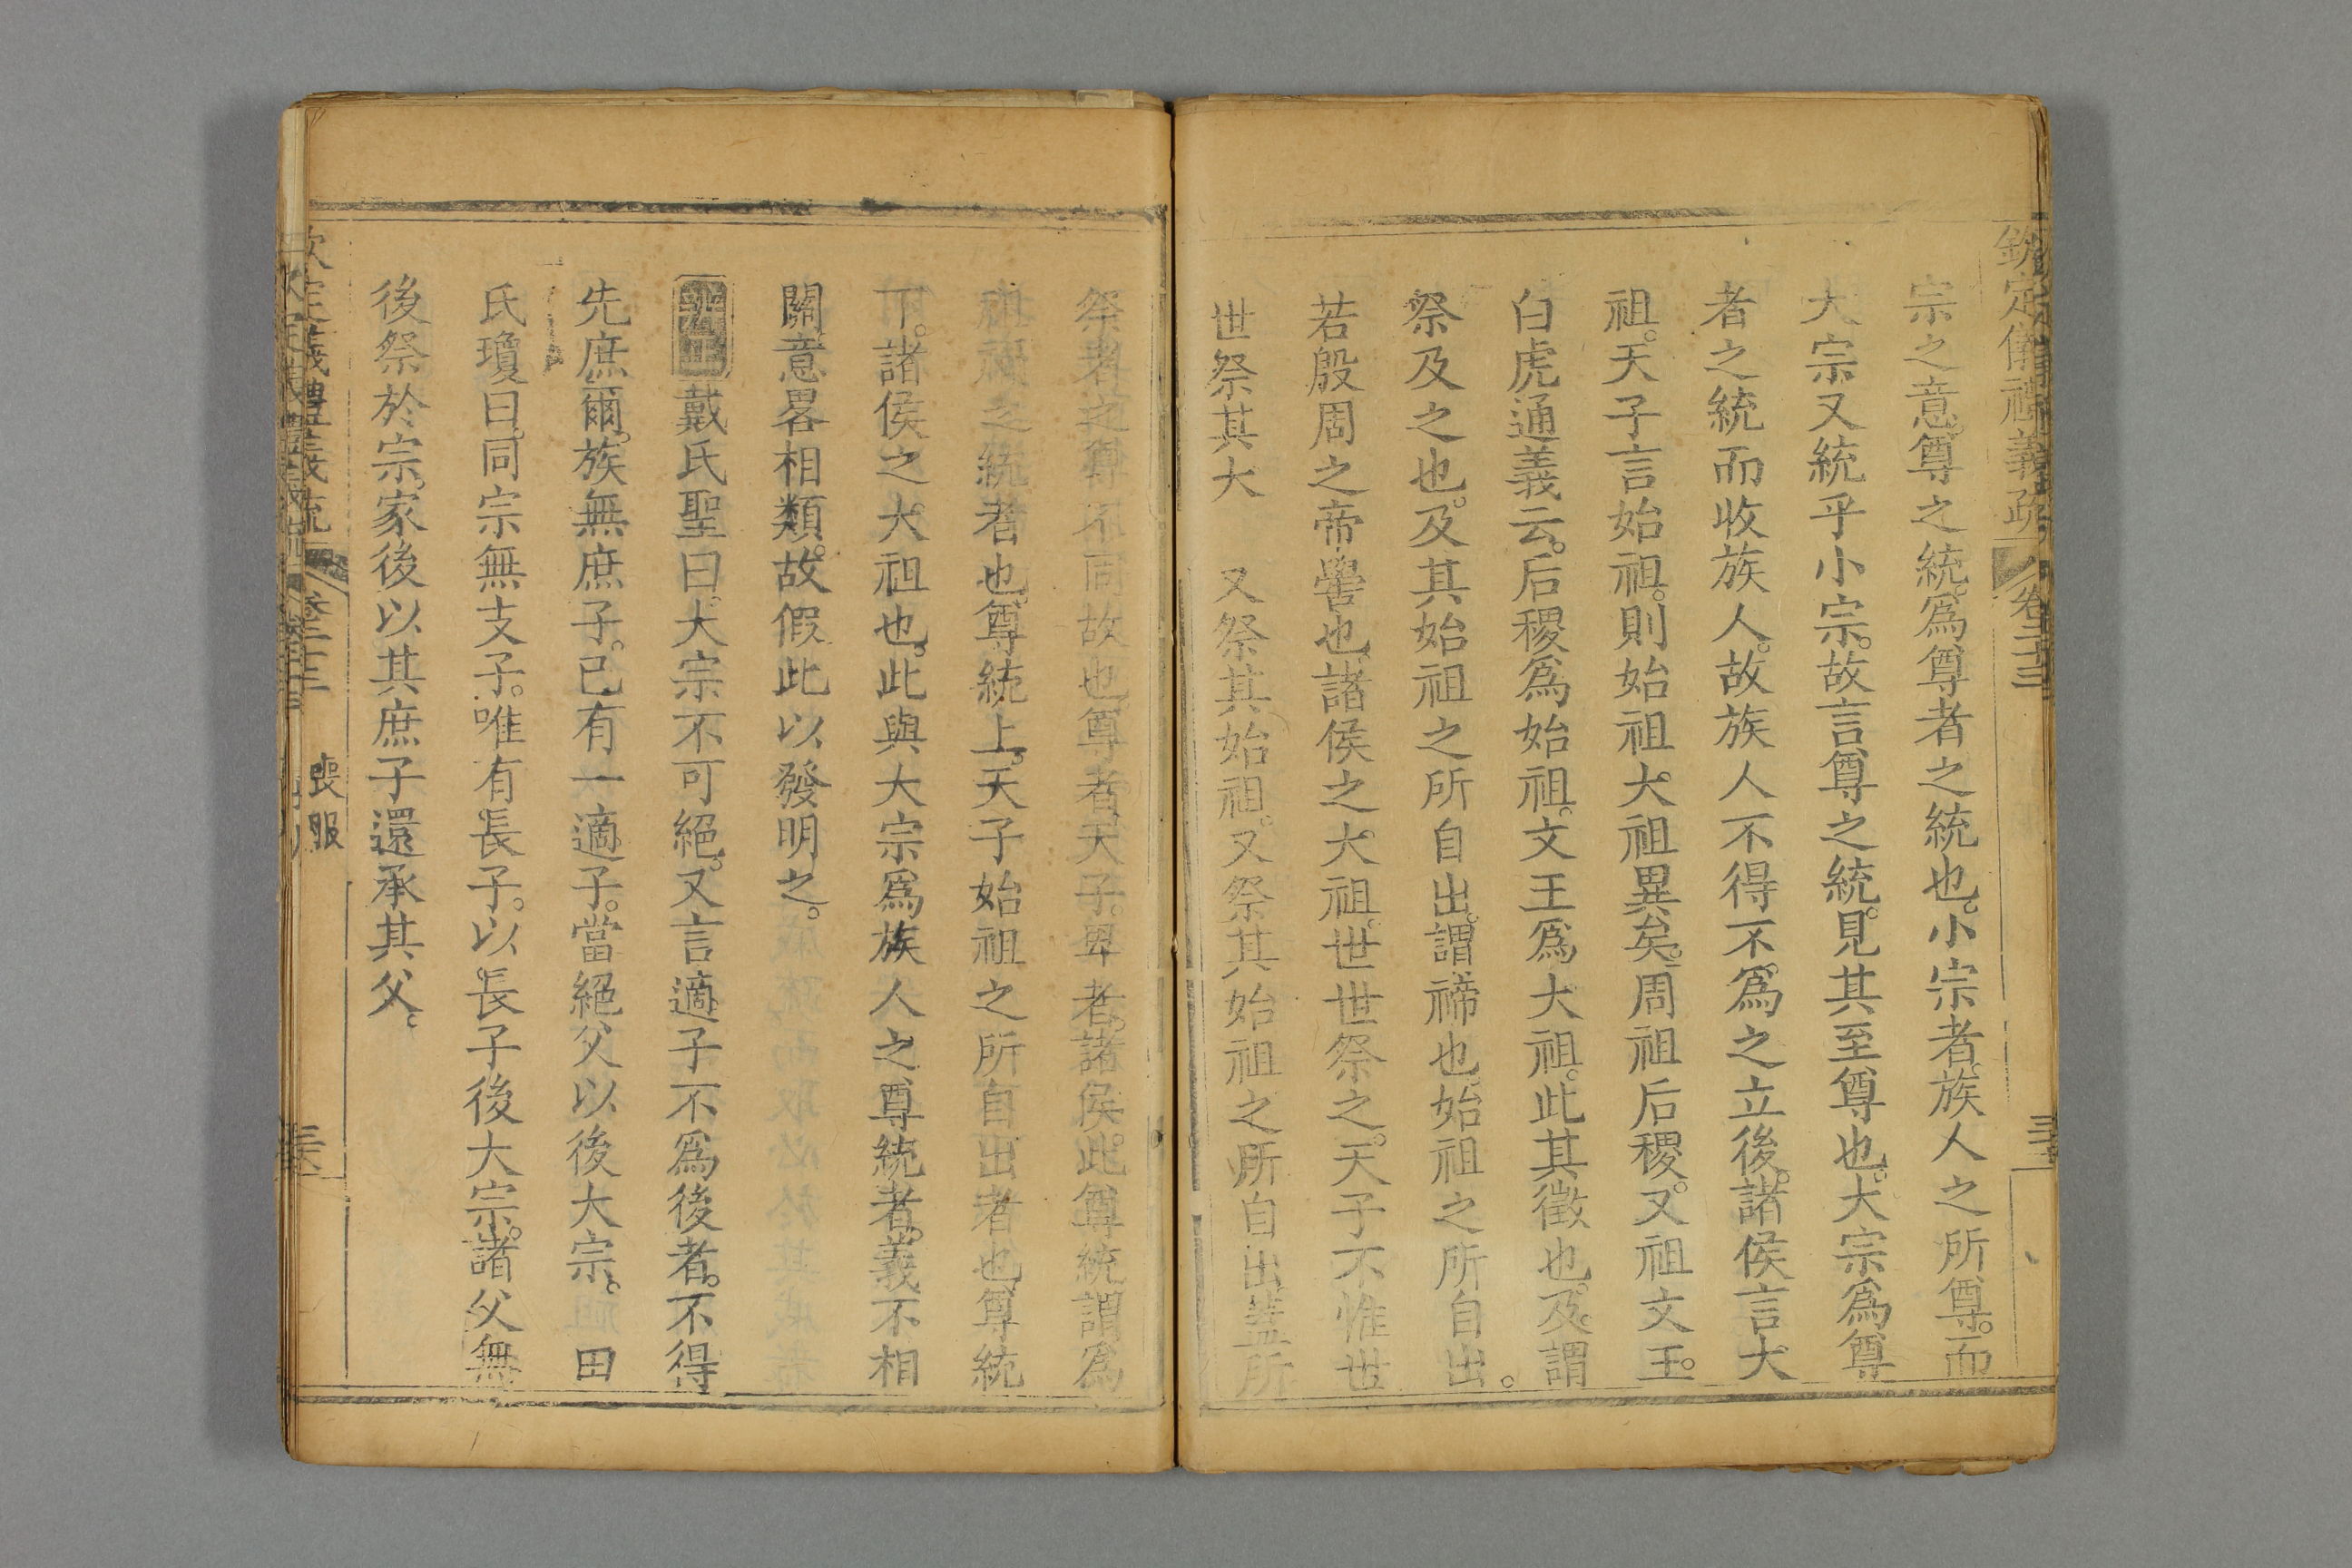 欽定儀禮義疏 卷二十三
宗之意尊之統爲尊者之統也小宗者族人之所尊而
大宗又統乎小宗故言尊之統見其至尊也大宗爲尊
者之統而收族人故族人不得不爲之立後諸侯言大
祖天子言始祖則始祖大祖異矣周祖后稷又祖文王
白虎通義云后稷爲始祖文王爲大祖此其徵也及謂
祭及之也及其始祖之所自出謂禘也始祖之所自出
若殷周之帝嚳也諸侯之大祖世世祭之天子不惟世
世祭其大 又祭其始祖又祭其始祖之所自出葢所
祭者之尊不同故也尊者天子卑者諸侯此尊統謂爲
祖 之統者也尊統上天子始祖之所自出者也尊統
下諸侯之大祖也此與大宗爲族人之尊統者義不相
關意畧相類故假此以發明之
辨正戴氏聖曰大宗不可絕又言適子不爲後者不得
先庶爾族無庶子已有一適子當絕父以後大宗 田
氏瓊曰同宗無支子唯有長子以長子後大宗諸父無
後祭於宗家後以其庶子還承其父
欽定儀禮義疏 卷二十三 喪服